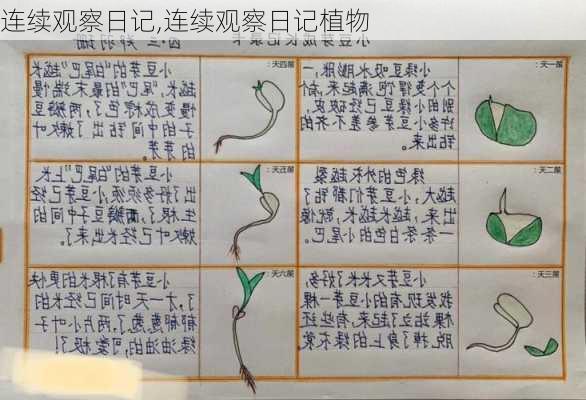 连续观察日记,连续观察日记植物
小豆芽成长记录卡 四·三 郑羽珊
第一天:
小绿豆吸水膨胀,一
个个变得饱满起来,个
别的小绿豆已经破皮,
许多小豆芽参差不齐的
钻出来。
第四天:
小豆芽的"白尾巴"越长
越长,"尾巴"的最末端慢
慢变成棕色了,两瓣豆
子的中间钻出了嫩叶
的芽芽。
第二天:
绿色的外衣越裂
越大,小豆芽们都钻了
出来,越长越长,就像
一条条白色的小尾巴。
第五天:
小豆芽的"白尾巴"上长
出了好多须须,小豆芽已经
生根了,两瓣豆子中间的
嫩叶已经长出来了。
第三天:
小豆芽又长大了好多,
我发现有的小豆芽一棵
棵站立了起来,有些还
脱掉了身上的绿衣裳。
第六天:
小豆芽有了根长的更快
了,才一天时间已经长的
郁郁葱葱了,两片小叶子
绿油油的,可爱极了!